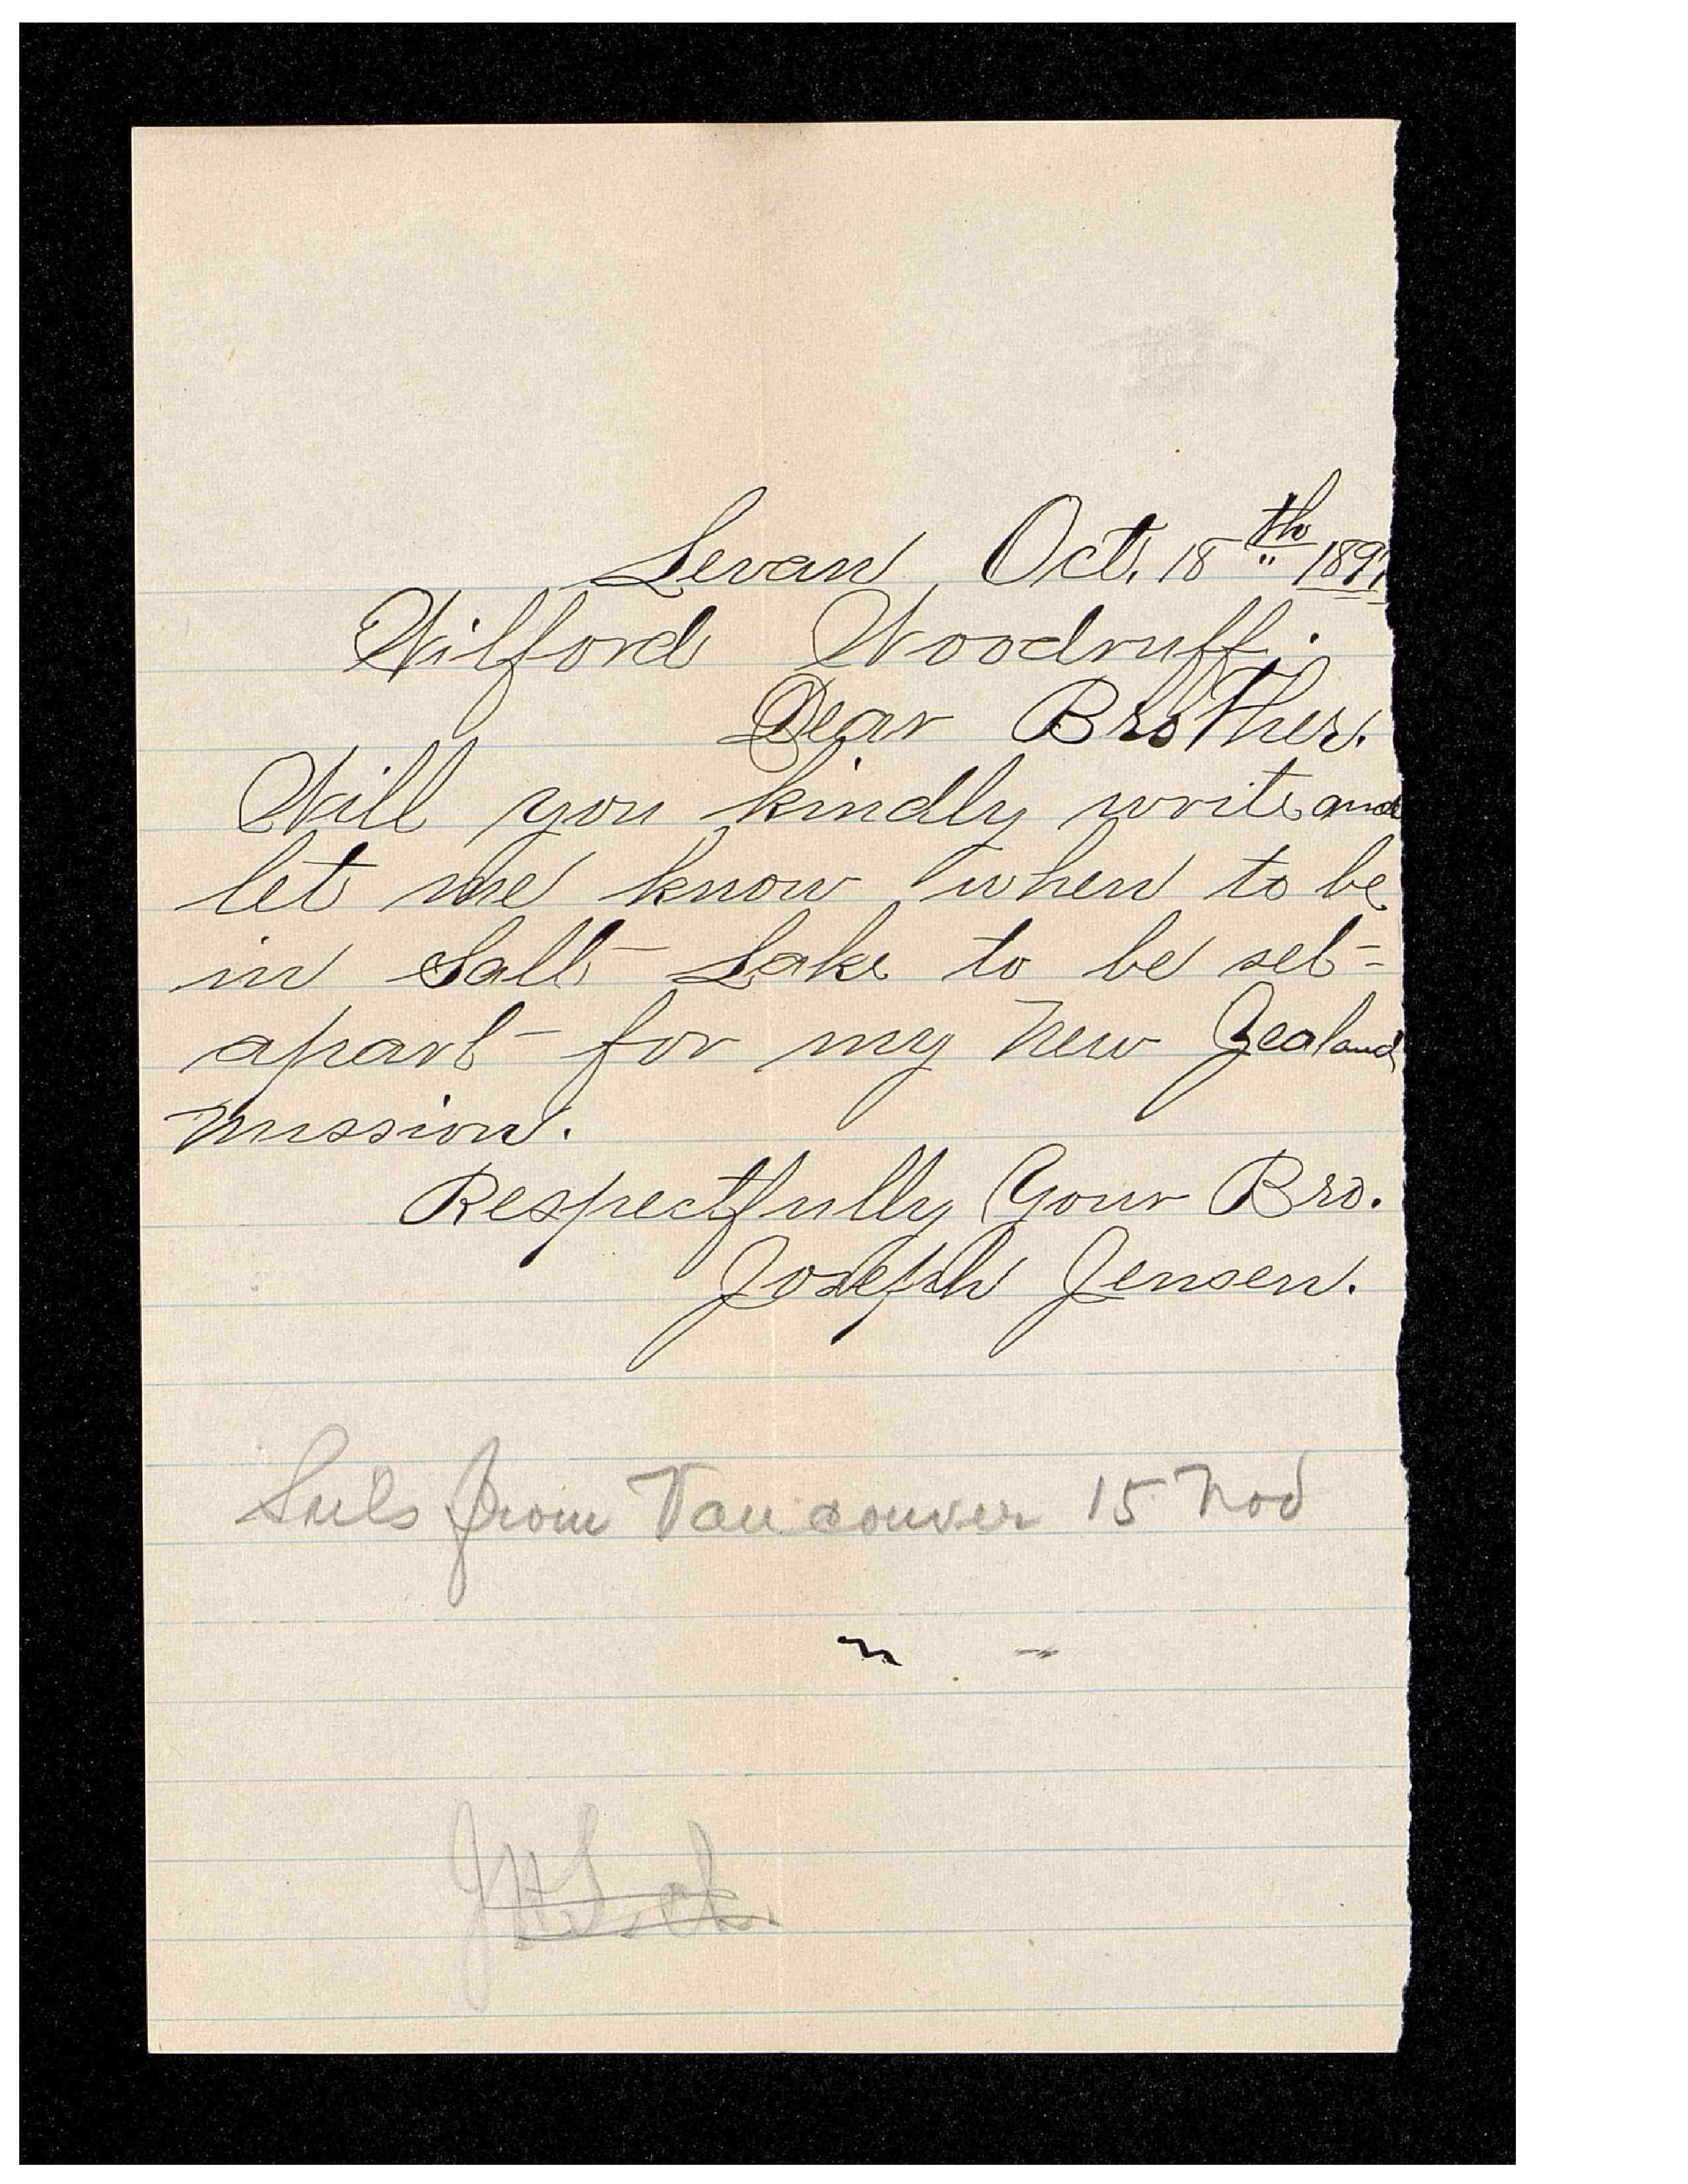 Levan, Oct. 18th 1897
Wilford Woodruff.
Dear Brother.
Will you kindly write and
let me know when to be
in Salt Lake to be set-
apart for my New Zealand
Mission.
Respectfully Your Bro.
Joseph Jensen.
from Vancouver 15 Nov